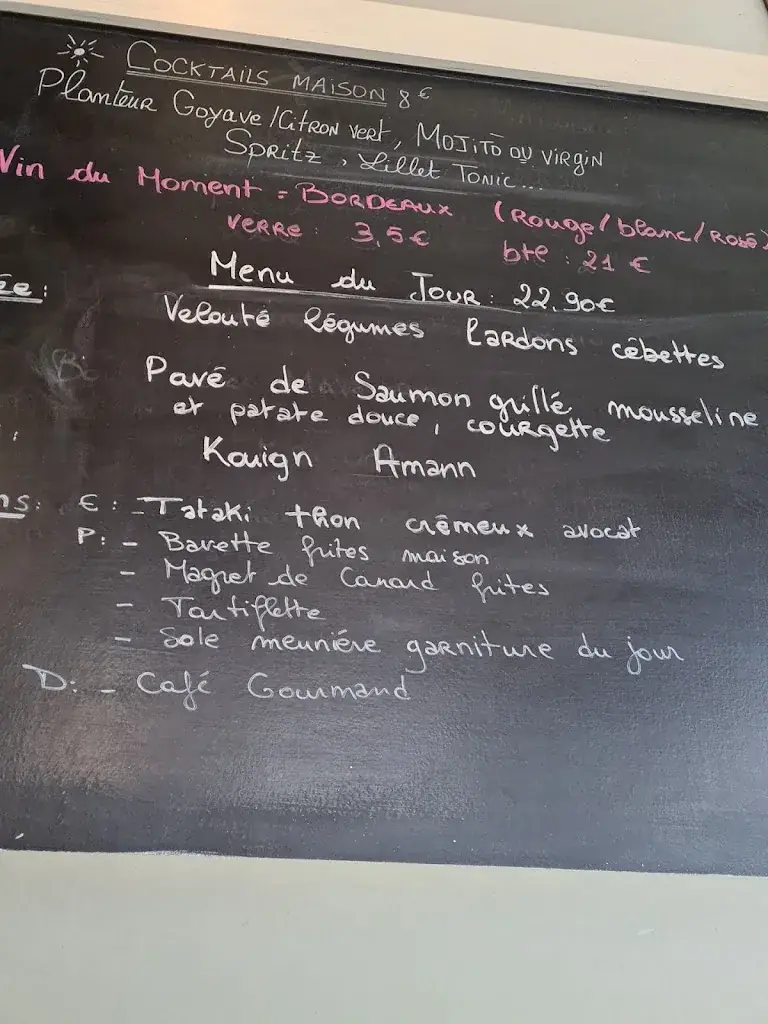 COCKTAILS MAISON 8€
Planteur Goyave / Citron vert, MOJITO ou virgin
SPRITZ, Lillet Tonic...
Vin du Moment = BORDEAUX (Rouge/blanc/Rosé)
verre : 3,5€ bte : 21 €
Menu du Jour : 22,90€
ée :
Velouté légumes lardons cébettes
Pavé de Saumon grillé mousseline
et patate douce, courgette
:
Kouign Amann
ns : E : - Tataki thon crémeux avocat
P : - Bavette frites maison
- Magret de Canard frites
- Tartiflette
- Sole meuniére garniture du jour
D : - Café Gourmand